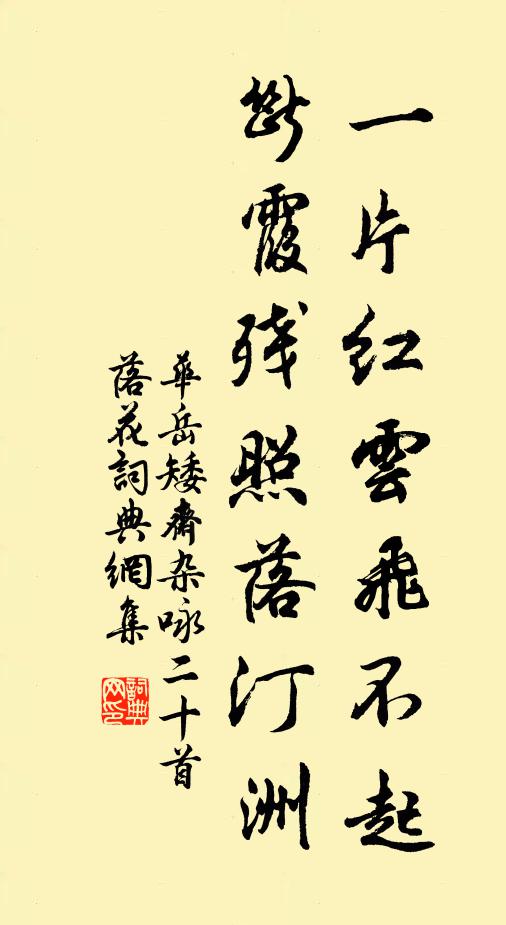 一片红雲飛不起
断霞残照落汀洲
華岳矮齋杂咏二十首
落花詞典網集
詞典网印